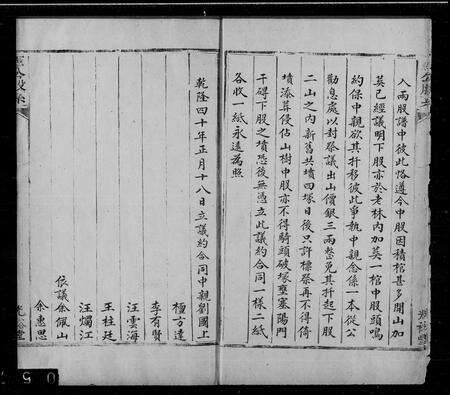 入兩股譜中彼此恪遵今中股因積棺甚多開山加
塟已經議明下股亦於老林內加塟一棺中股頭鳴
約保中親欲其扦移彼此爭執中親念係一本從公
勸息處以封祭議出山價銀三兩整免其扦起下股
二山之內新舊共墳四塚日後只許標祭再不得倚
墳添葬侵佔山樹中股亦不得騎頭破塚壅塞陽門
干碍下股之墳恐後無憑立此議約合同一樣二紙
各收一紙永遠為照
乾隆四十年正月十八日立議約合同中親劉國上
種方遠
李有賢
汪雲海
王柱廷
汪燭江
依議余佩山
余惠思
光裕堂
0 5